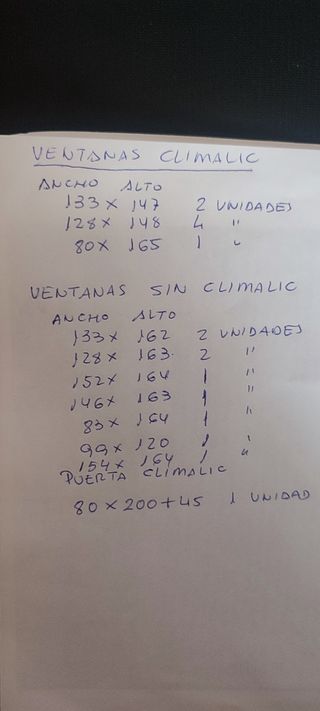 VENTANAS CLIMALIC
ANCHO ALTO
133 x 147 2 UNIDADES
128 x 148 4 "
80 x 165 1 "
VENTANAS SIN CLIMALIC
ANCHO ALTO
133 x 162 2 UNIDADES
128 x 163 2 "
152 x 164 1 "
146 x 163 1 "
83 x 164 1 "
99 x 120 1 "
154 x 164 1 "
PUERTA CLIMALIC
80 x 200 + 45 1 UNIDAD